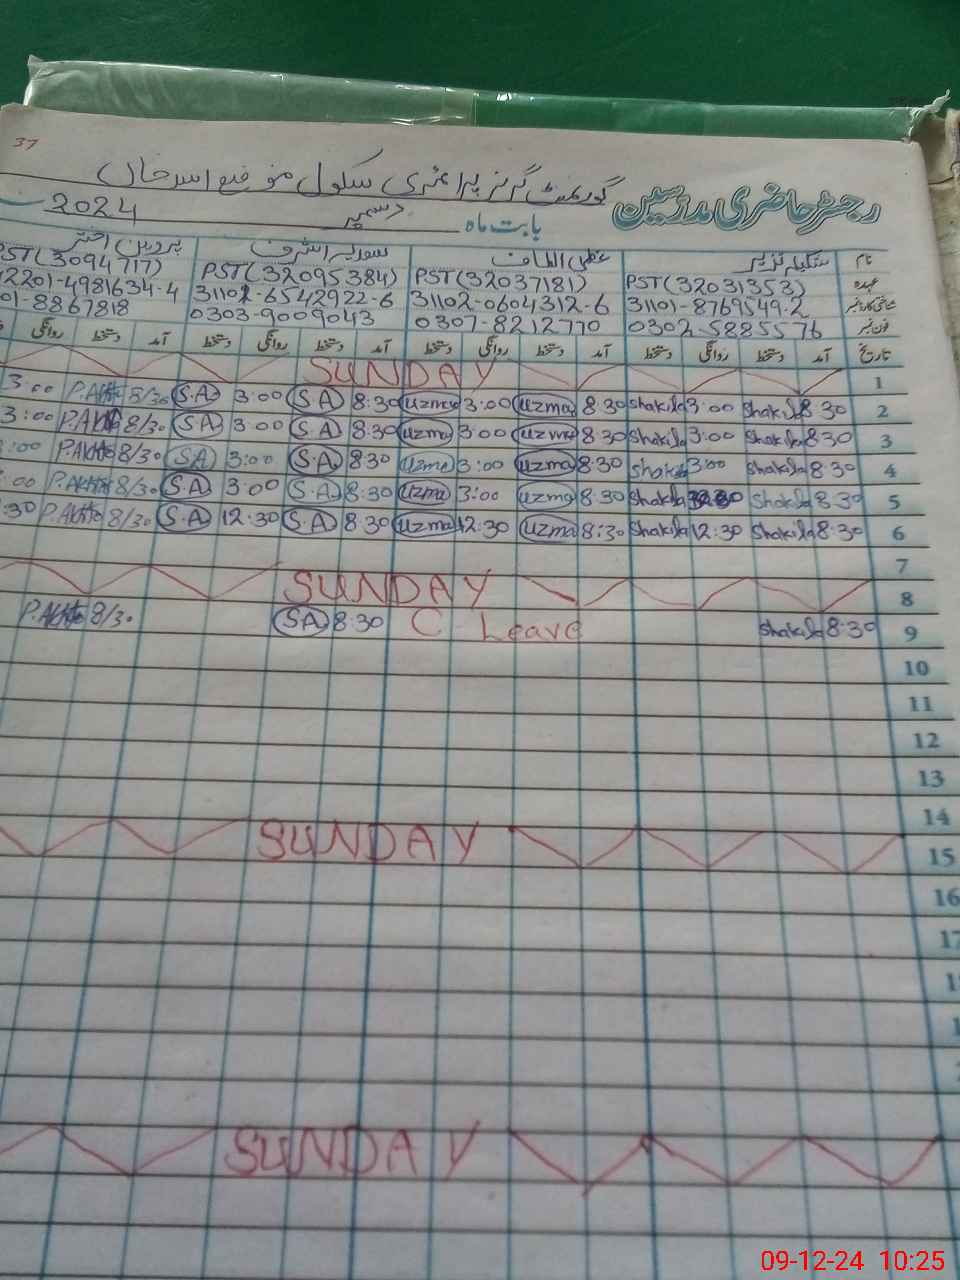 37
گورنمنٹ گرلز پرائمری سکول موضع اسرحاں
رجسٹر حاضری مدرسین
بابت ماہ دسمبر 2024
نام شکیلہ نزیر عظمیٰ الطاف سویرا اشرف پروین اختر
عہدہ PST(32031353) PST(32037181) PST(32095384) PST(3094717)
شناختی کارڈ نمبر 31101-8769549-2 31102-0604312-6 31102-6542922-6 2201-4981634-4
فون نمبر 0302-5885576 0307-8212770 0303-9009043 01-8867818
تاریخ آمد دستخط روانگی دستخط آمد دستخط روانگی دستخط آمد دستخط روانگی دستخط آمد دستخط روانگی
1 SUNDAY
2 8:30 Shakila 3:00 Shakila 8:30 Uzma 3:00 Uzma 8:30 S.A 3:00 S.A 8/30 P.Akhtar 3:00
3 8:30 Shakila 3:00 Shakila 8:30 Uzma 3:00 Uzma 8:30 S.A 3:00 S.A 8/30 P.Akhtar 3:00
4 8:30 Shakila 3:00 Shakila 8:30 Uzma 3:00 Uzma 8:30 S.A 3:00 S.A 8/30 P.Akhtar :00
5 8:30 Shakila Shakila 8:30 Uzma 3:00 Uzma 8:30 S.A 3:00 S.A 8/30 P.Akhtar :00
6 8:30 Shakila 12:30 Shakila 8:30 Uzma 12:30 Uzma 8:30 S.A 12:30 S.A 8/30 P.Akhtar :30
7
8 SUNDAY
9 8:30 Shakila C Leave 8:30 S.A 8/30 P.Akhtar
10
11
12
13
14
15 SUNDAY
16
17
SUNDAY
09-12-24 10:25